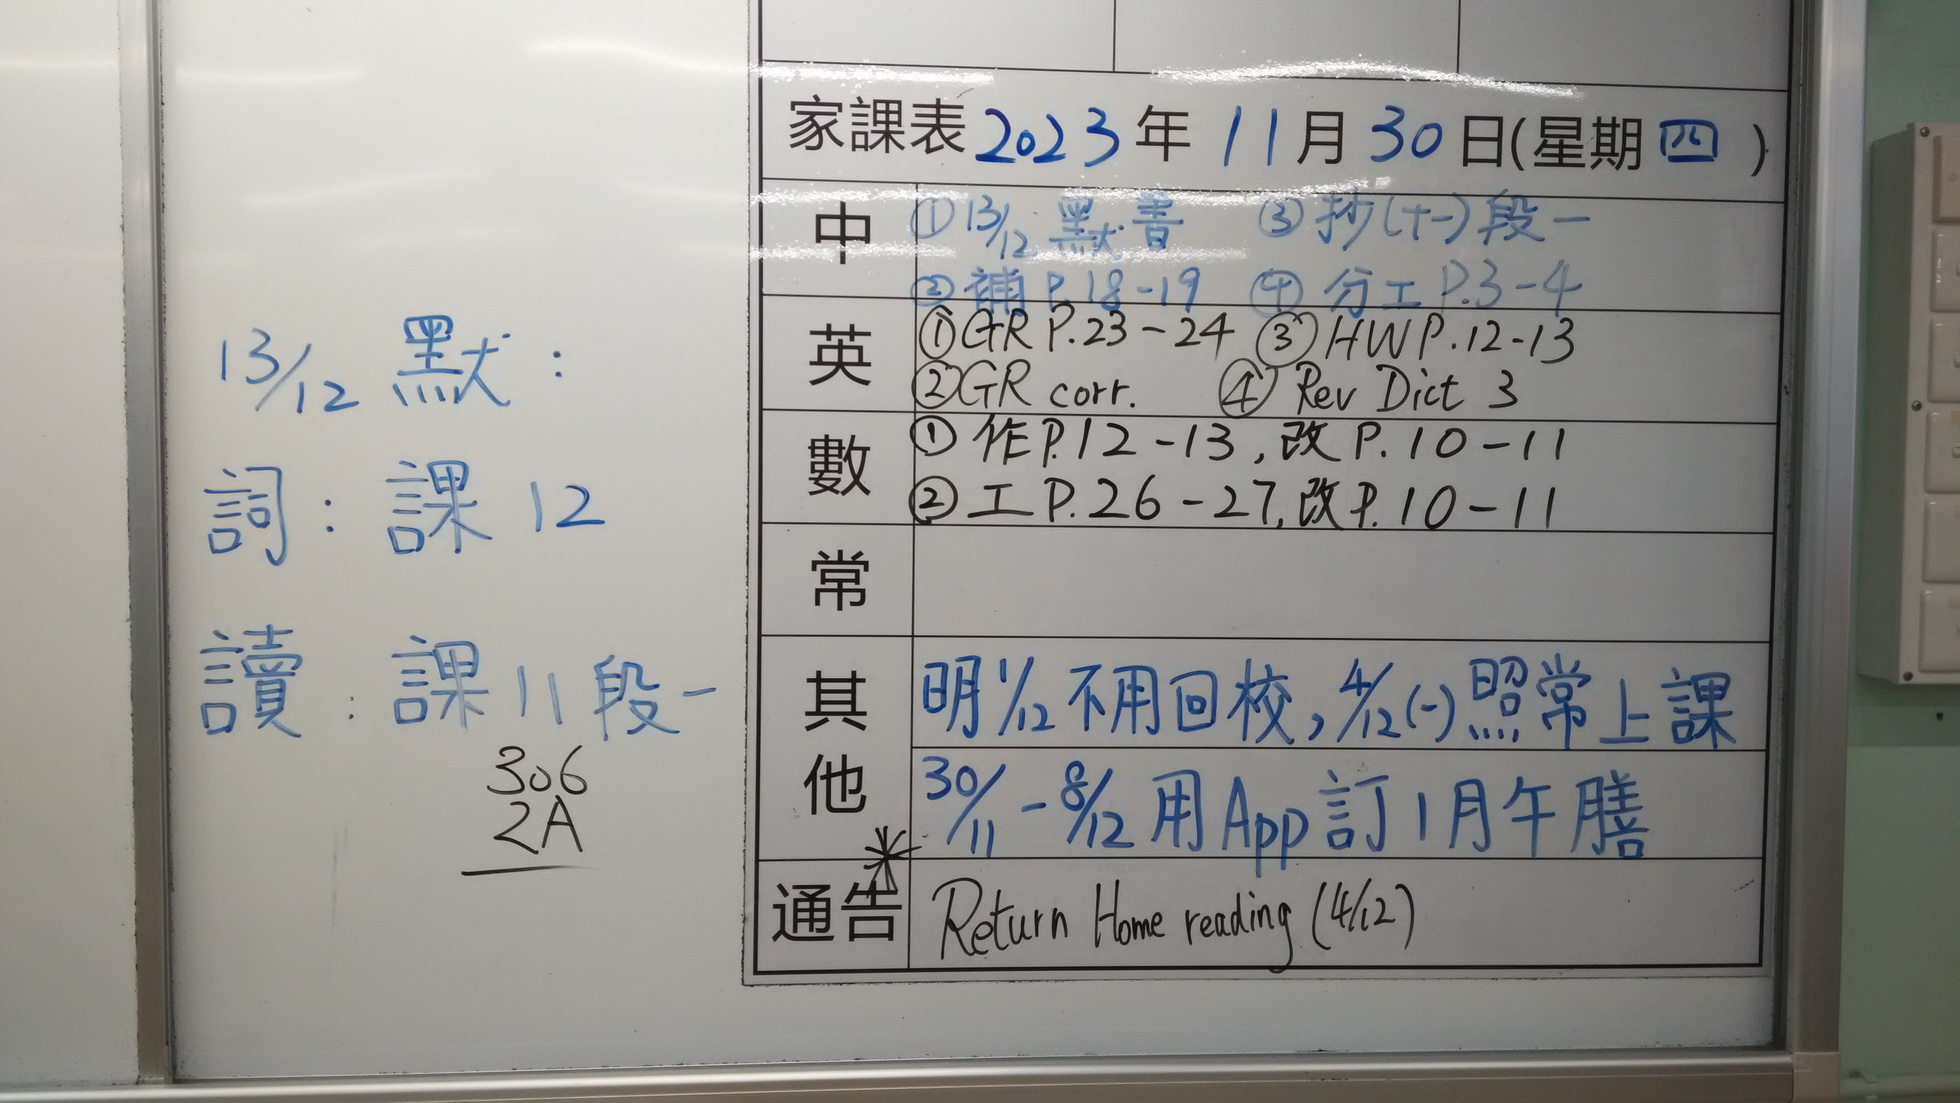 家課表 2023年 11月30日(星期四)
中
① 13/12 默書 ③ 抄(十一)段一
② 補 P.18-19 ④ 分工 P.3-4
英
① GR P.23-24 ③ HW P.12-13
② GR corr. ④ Rev Dict 3
數
① 作 P.12-13, 改 P.10-11
② 工 P.26-27, 改 P.10-11
常
其他
明 1/12 不用回校, 4/12(一)照常上課
30/11 - 8/12 用 App 訂 1月午膳
通告
Return Home reading (4/12)
13/12 默:
詞: 課 12
讀: 課 11 段一
306
2A